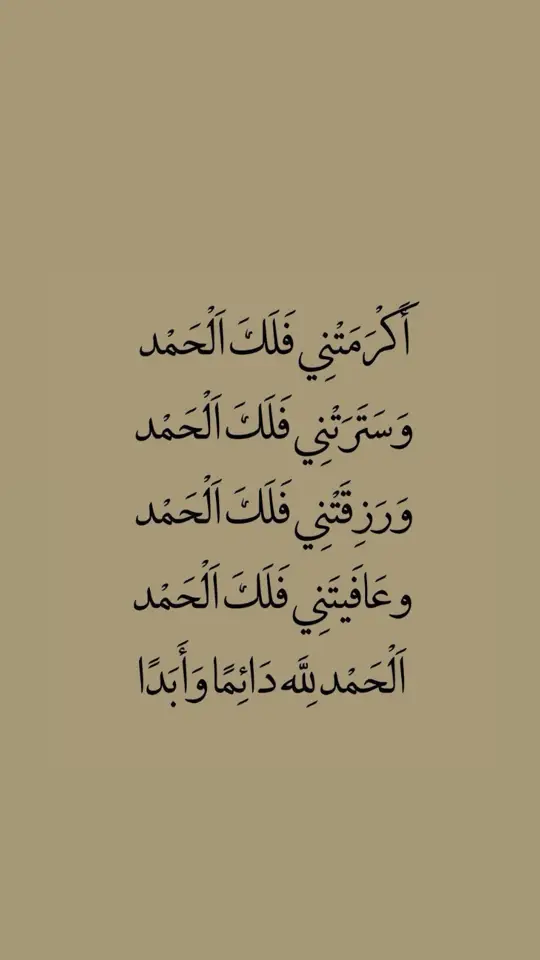 أَكْرَمَتْنِي فَلَكَ اَلْحَمْد
وَسَتَرَتْنِي فَلَكَ اَلْحَمْد
وَرَزِقَتْنِي فَلَكَ اَلْحَمْد
وعَافَيتَنِي فَلَكَ اَلْحَمْد
اَلْحَمْد لِلَّه دَائِمًا وَأَبَدًا